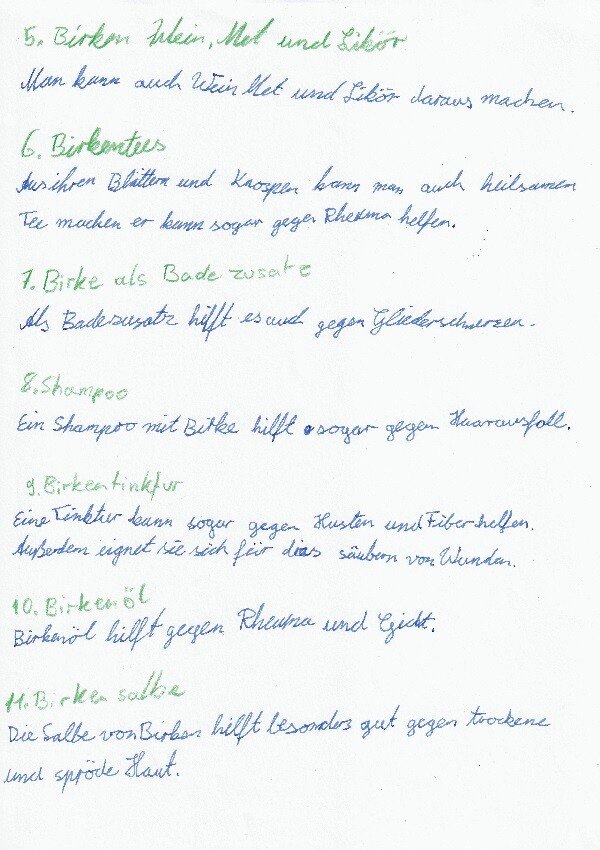 5. Birken Wein, Met und Likör
Man kann auch Wein Met und Likör daraus machen.
6. Birkentees
Aus ihren Blättern und Knospen kann man auch heilsamen
Tee machen er kann sogar gegen Rheuma helfen.
7. Birke als Bade zusatz
Als Badezusatz hilft es auch gegen Gliederschmerzen.
8. Shampoo
Ein Shampoo mit Birke hilft sogar gegen Haarausfall.
9. Birkentinktur
Eine Tinktur kann sogar gegen Husten und Fiber helfen.
Außerdem eignet sie sich für das säubern von Wunden.
10. Birkenöl
Birkenöl hilft gegen Rheuma und Gicht.
11. Birken salbe
Die Salbe von Birken hilft besonders gut gegen trockene
und spröde Haut.